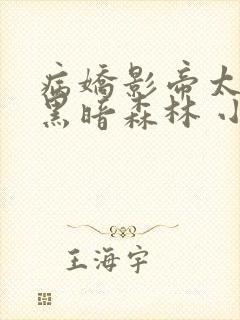 病嬌影帝太
黑暗森林 小
王海宇